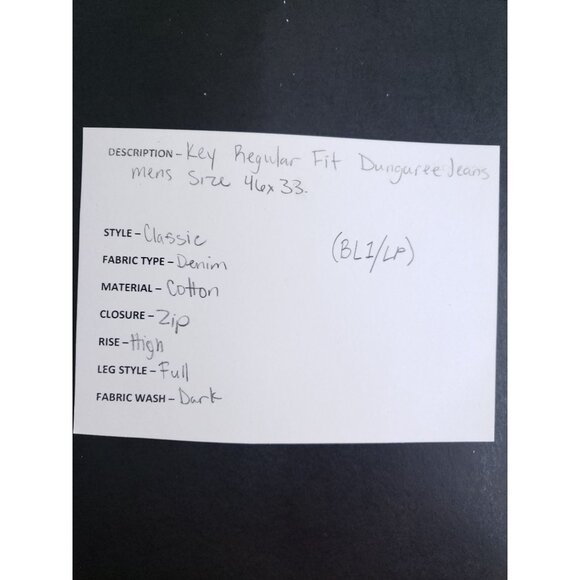 DESCRIPTION - Key Regular Fit Dunguree Jeans
mens Size 46x33.
STYLE - Classic
(BL1/LP)
FABRIC TYPE - Denim
MATERIAL - Cotton
CLOSURE - Zip
RISE - High
LEG STYLE - Full
FABRIC WASH - Dark